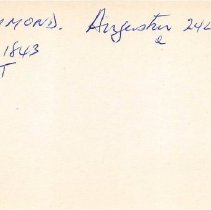 MMOND. Augustus 24
a
1843
T